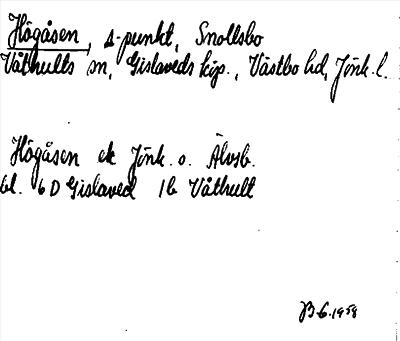 Högåsen, s-punkt, Snollsbo
Våthults sn, Gislaveds köp., Västbo hd, Jönk. l.
Högåsen ek Jönk. o. Älvsb.
bl. 6 D Gislaved 1b Våthult
B-G. 1958